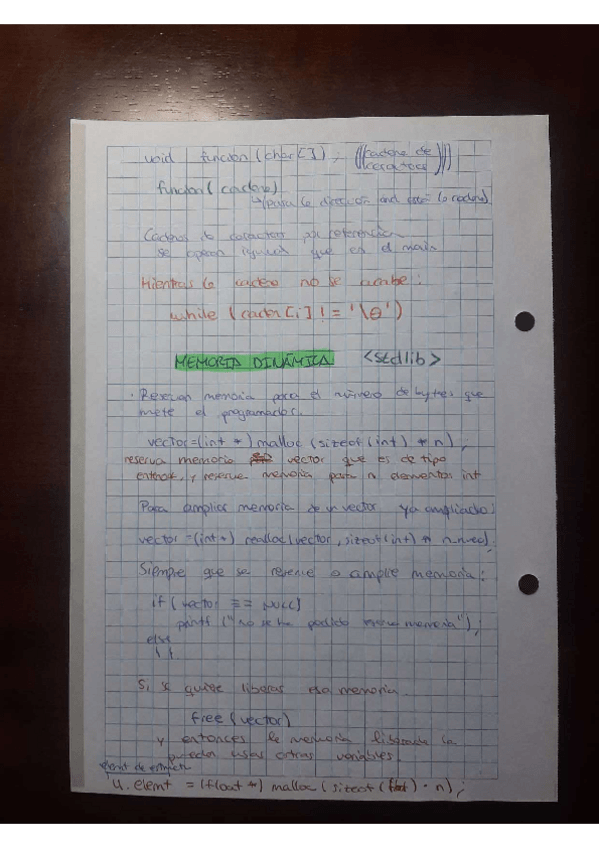 void funcion (char [ ]) ; ((cadena de
caracteres))
funcion ( cadena)
↳(pasa la dirección donde está la cadena)
Cadenas de caracteres por referencia
se operan igual que en el main
Mientras la cadena no se acabe :
while ( caden [i] ! = '\0')
MEMORIA DINÁMICA <stdlib>
· Reservan memoria para el número de bytes que
mete el programador.
vector=(int *) malloc (sizeof (int) * n) ;
reserva memoria vector que es de tipo
entero*, y reserva memoria para n elementos int
Para ampliar memoria de un vector ya ampliado:
vector =(int *) realloc(vector, sizeof(int) *
Siempre que se reserve o amplie memoria :
if ( vector == NULL)
printf ("no se ha podido reservar memoria") ;
else
{ }
Si se quiere liberar esa memoria
free (vector)
y entonces la memoria liberada la
pueden usar otras variables
elemt de estruct
u. elemt = (float *) malloc ( sizeof (float) · n) ;